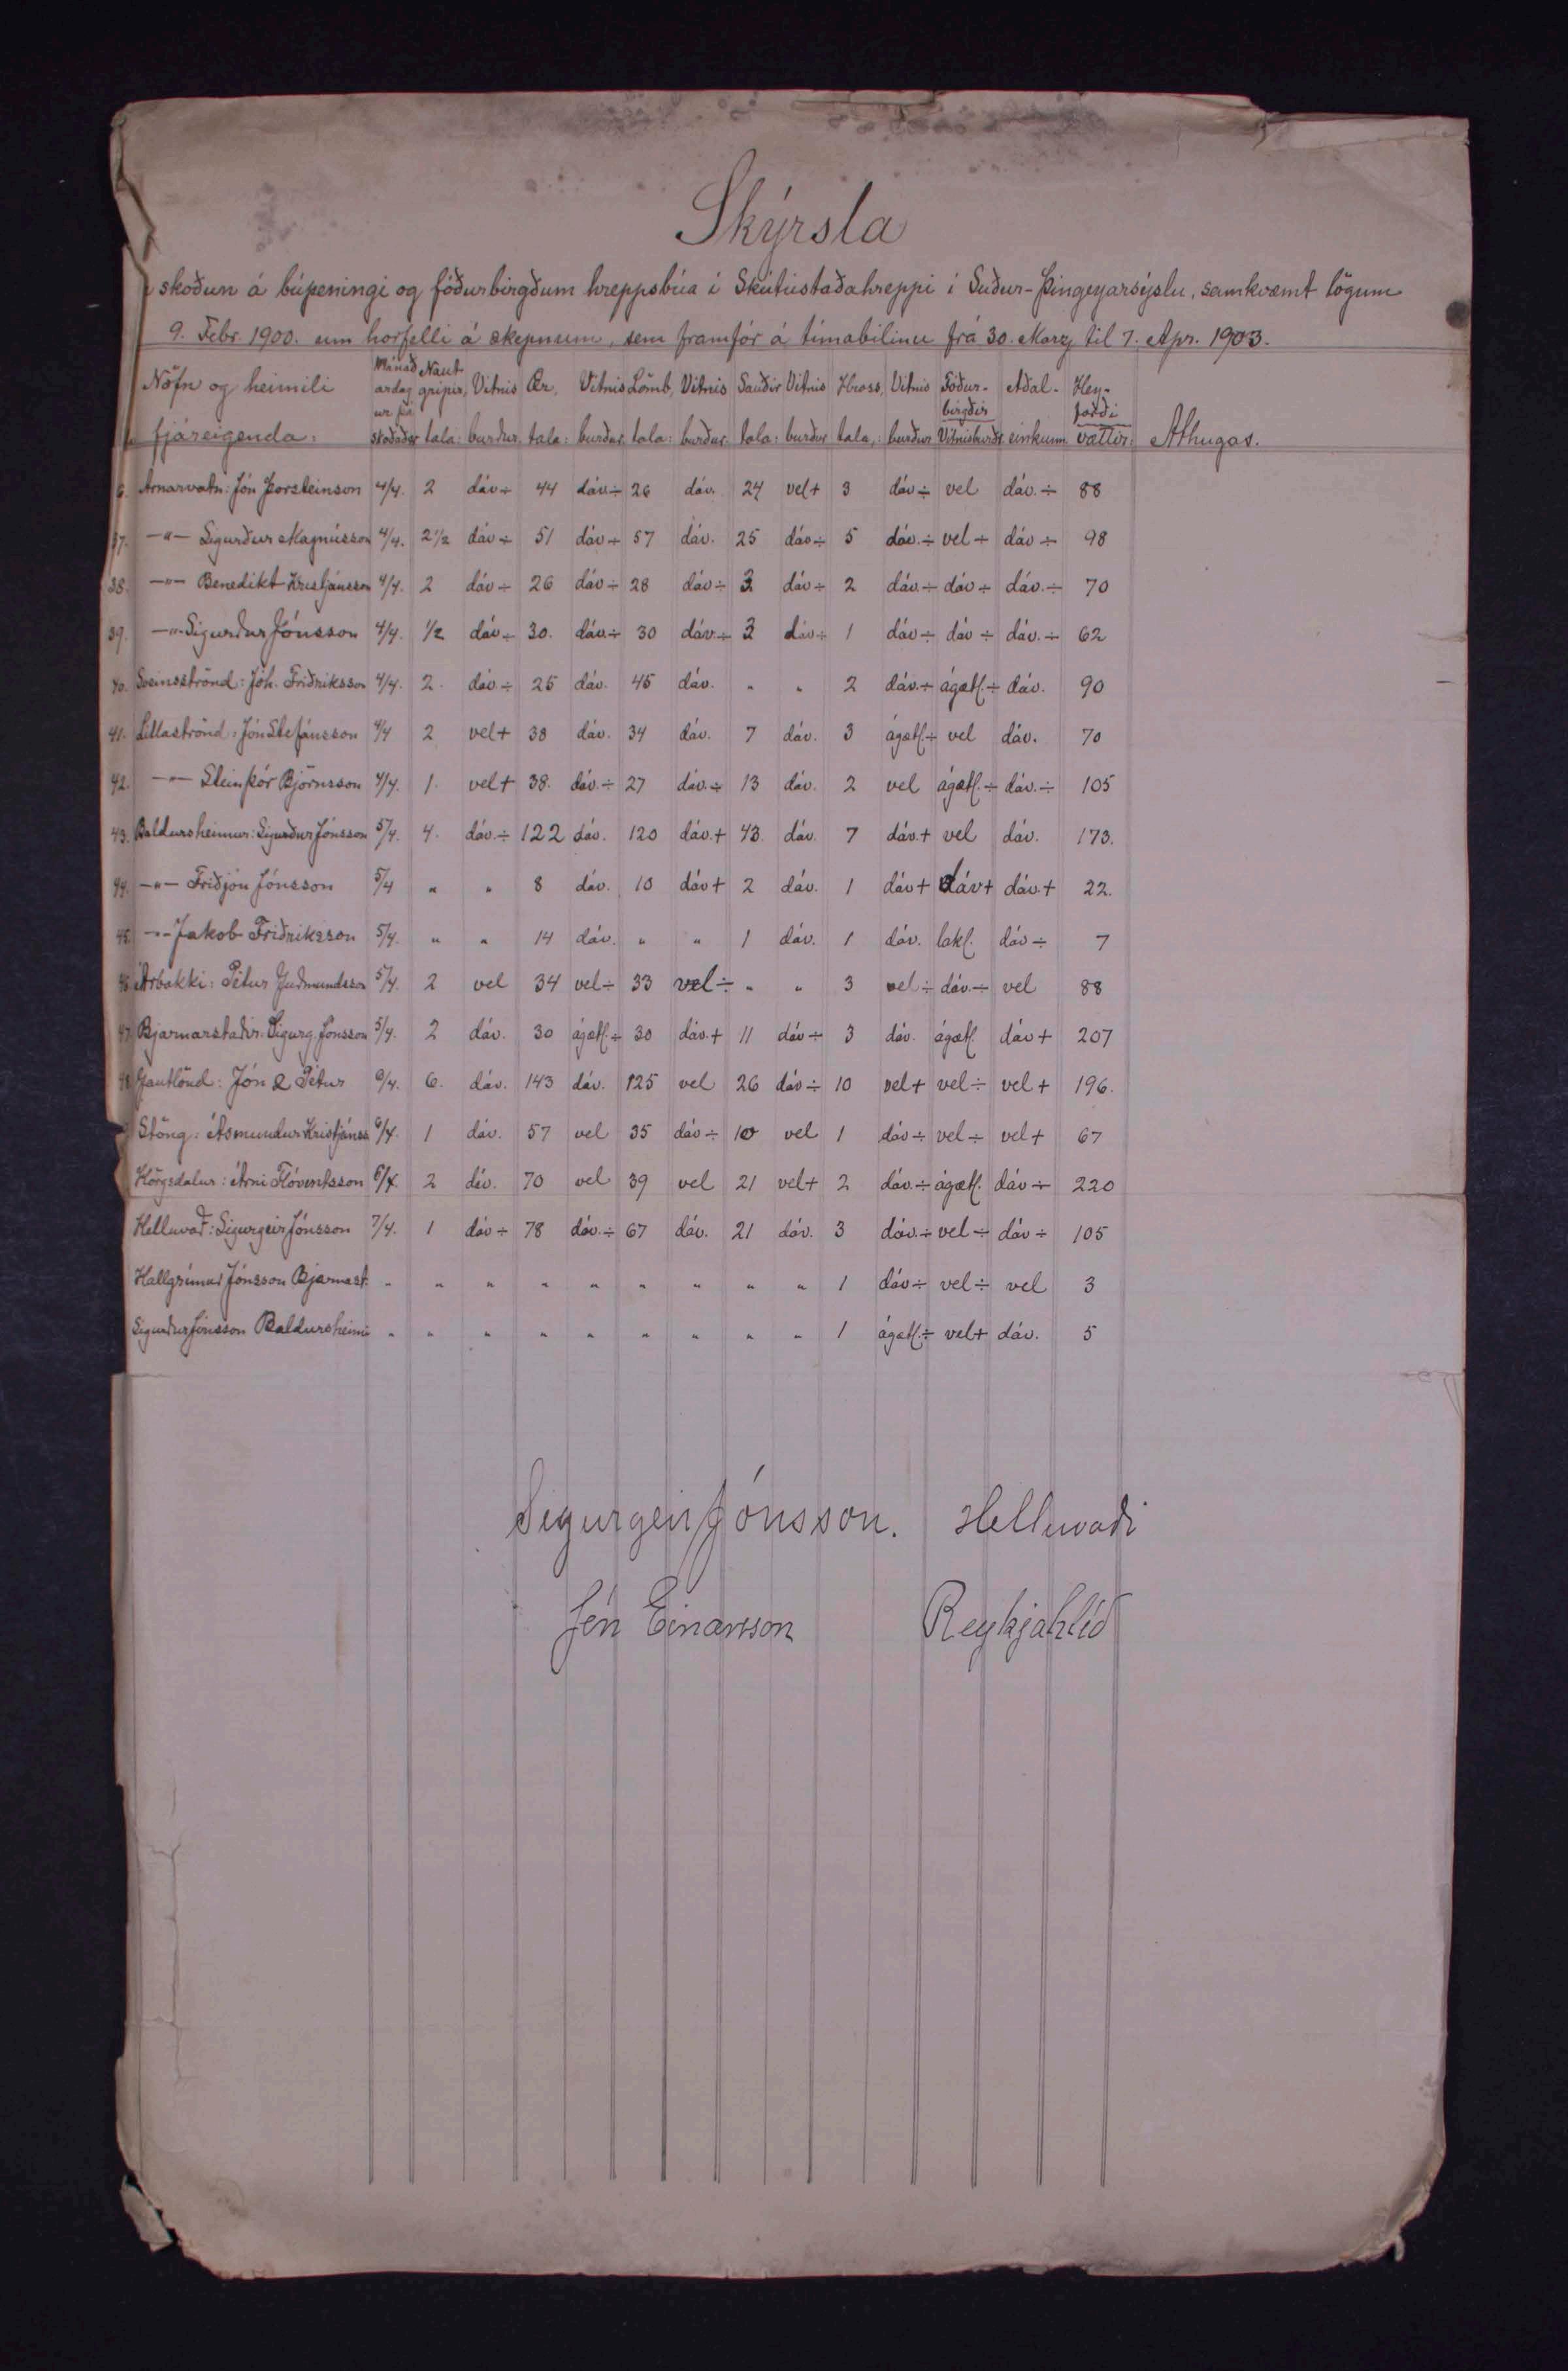 Skýrsla
skoðun á búpeningi og fóðurbirgðum hreppsbúa í Skútustaðahreppi í Suður-Þingeyarsýslu, samkvæmt lögum
9. Febr. 1900. um horfelli á skepnum, sem framfór á tímabilinu frá 30. Marz til 7. Apr. 1903.
Nöfn og heimili fjáreigenda: Mánaðardagur þá skoðað er Nautgripir, tala: Vitnisburður, Ær, tala: Vitnisburður. Lömb, tala: Vitnisburður. Sauðir tala: Vitnisburður Hross, tala,: Vitnisburður Fóðurbirgðir Vitnisburðr Aðaleinkunn Heyforði vættir. Athugas.
6. Arnarvatn: Jón Þorsteinson 4/4. 2 dáv÷ 44 dáv.÷ 26 dáv. 24 vel+ 3 dáv÷ vel dáv.÷ 88
37. —"— Sigurður Magnússon 4/4. 2 1/2 dáv÷ 51 dáv÷ 57 dáv. 25 dáv÷ 5 dáv.÷ vel÷ dáv÷ 98
38. —"— Benedikt Kristjánsson 4/4. 2 dáv÷ 26 dáv÷ 28 dáv÷ 3 dáv÷ 2 dáv.÷ dáv÷ dáv.÷ 70
39. —"— Sigurður Jónsson 4/4. 1/2 dáv÷ 30. dáv.÷ 30 dáv.÷ 3 dáv÷ 1 dáv÷ dáv÷ dáv.÷ 62
40. Sveinsströnd: Jóh. Friðriksson 4/4. 2. dáv.÷ 25 dáv. 45 dáv. " " 2 dáv.÷ ágætl.÷ dáv. 90
41. Litlaströnd: Jón Stefánsson 4/4 2 vel+ 38 dáv. 34 dáv. 7 dáv. 3 ágætl.÷ vel dáv. 70
42. —"— Steinþór Björnsson 4/4. 1. vel+ 38. dáv.÷ 27 dáv.÷ 13 dáv. 2 vel ágætl.÷ dáv.÷ 105
43. Baldursheimur: Sigurður Jónsson 5/4. 4. dáv.÷ 122 dáv. 120 dáv.+ 43. dáv. 7 dáv.+ vel dáv. 173.
44. —"— Friðjón Jónsson 5/4 " " 8 dáv. 10 dáv+ 2 dáv. 1 dáv+ dáv+ dáv.+ 22.
45. —"— Jakob Friðriksson 5/4. " " 14 dáv. " " 1 dáv. 1 dáv. lakl. dáv÷ 7
46. Árbakki: Pétur Guðmundsson 5/4. 2 vel 34 vel÷ 33 vel÷ " " 3 vel÷ dáv.÷ vel 88
47. Bjarnarstaðir: Sigurg. Jónsson 5/4. 2 dáv. 30 ágætl.÷ 30 dáv.+ 11 dáv÷ 3 dáv. ágætl. dáv+ 207
48. Gautlönd: Jón & Pétur 6/4. 6. dáv. 143 dáv. 125 vel 26 dáv÷ 10 vel+ vel÷ vel+ 196.
Stöng: Ásmundur Kristjánss. 6/4. 1 dáv. 57 vel 35 dáv÷ 10 vel 1 dáv÷ vel÷ vel+ 67
Hörgsdalur: Árni Flóventsson 6/4. 2 dáv. 70 vel 39 vel 21 vel+ 2 dáv.÷ ágætl. dáv÷ 220
Helluvað: Sigurgeir Jónsson 7/4. 1 dáv÷ 78 dáv.÷ 67 dáv. 21 dáv. 3 dáv.÷ vel÷ dáv÷ 105
Hallgrímur Jónsson Bjarnast. " " " " " " " " " 1 dáv÷ vel÷ vel 3
Sigurður Jónsson Baldursheimi " " " " " " " " " 1 ágætl.÷ vel+ dáv. 5
Sigurgeir Jónsson. Helluvaði
Jón Einarsson Reykjahlíð